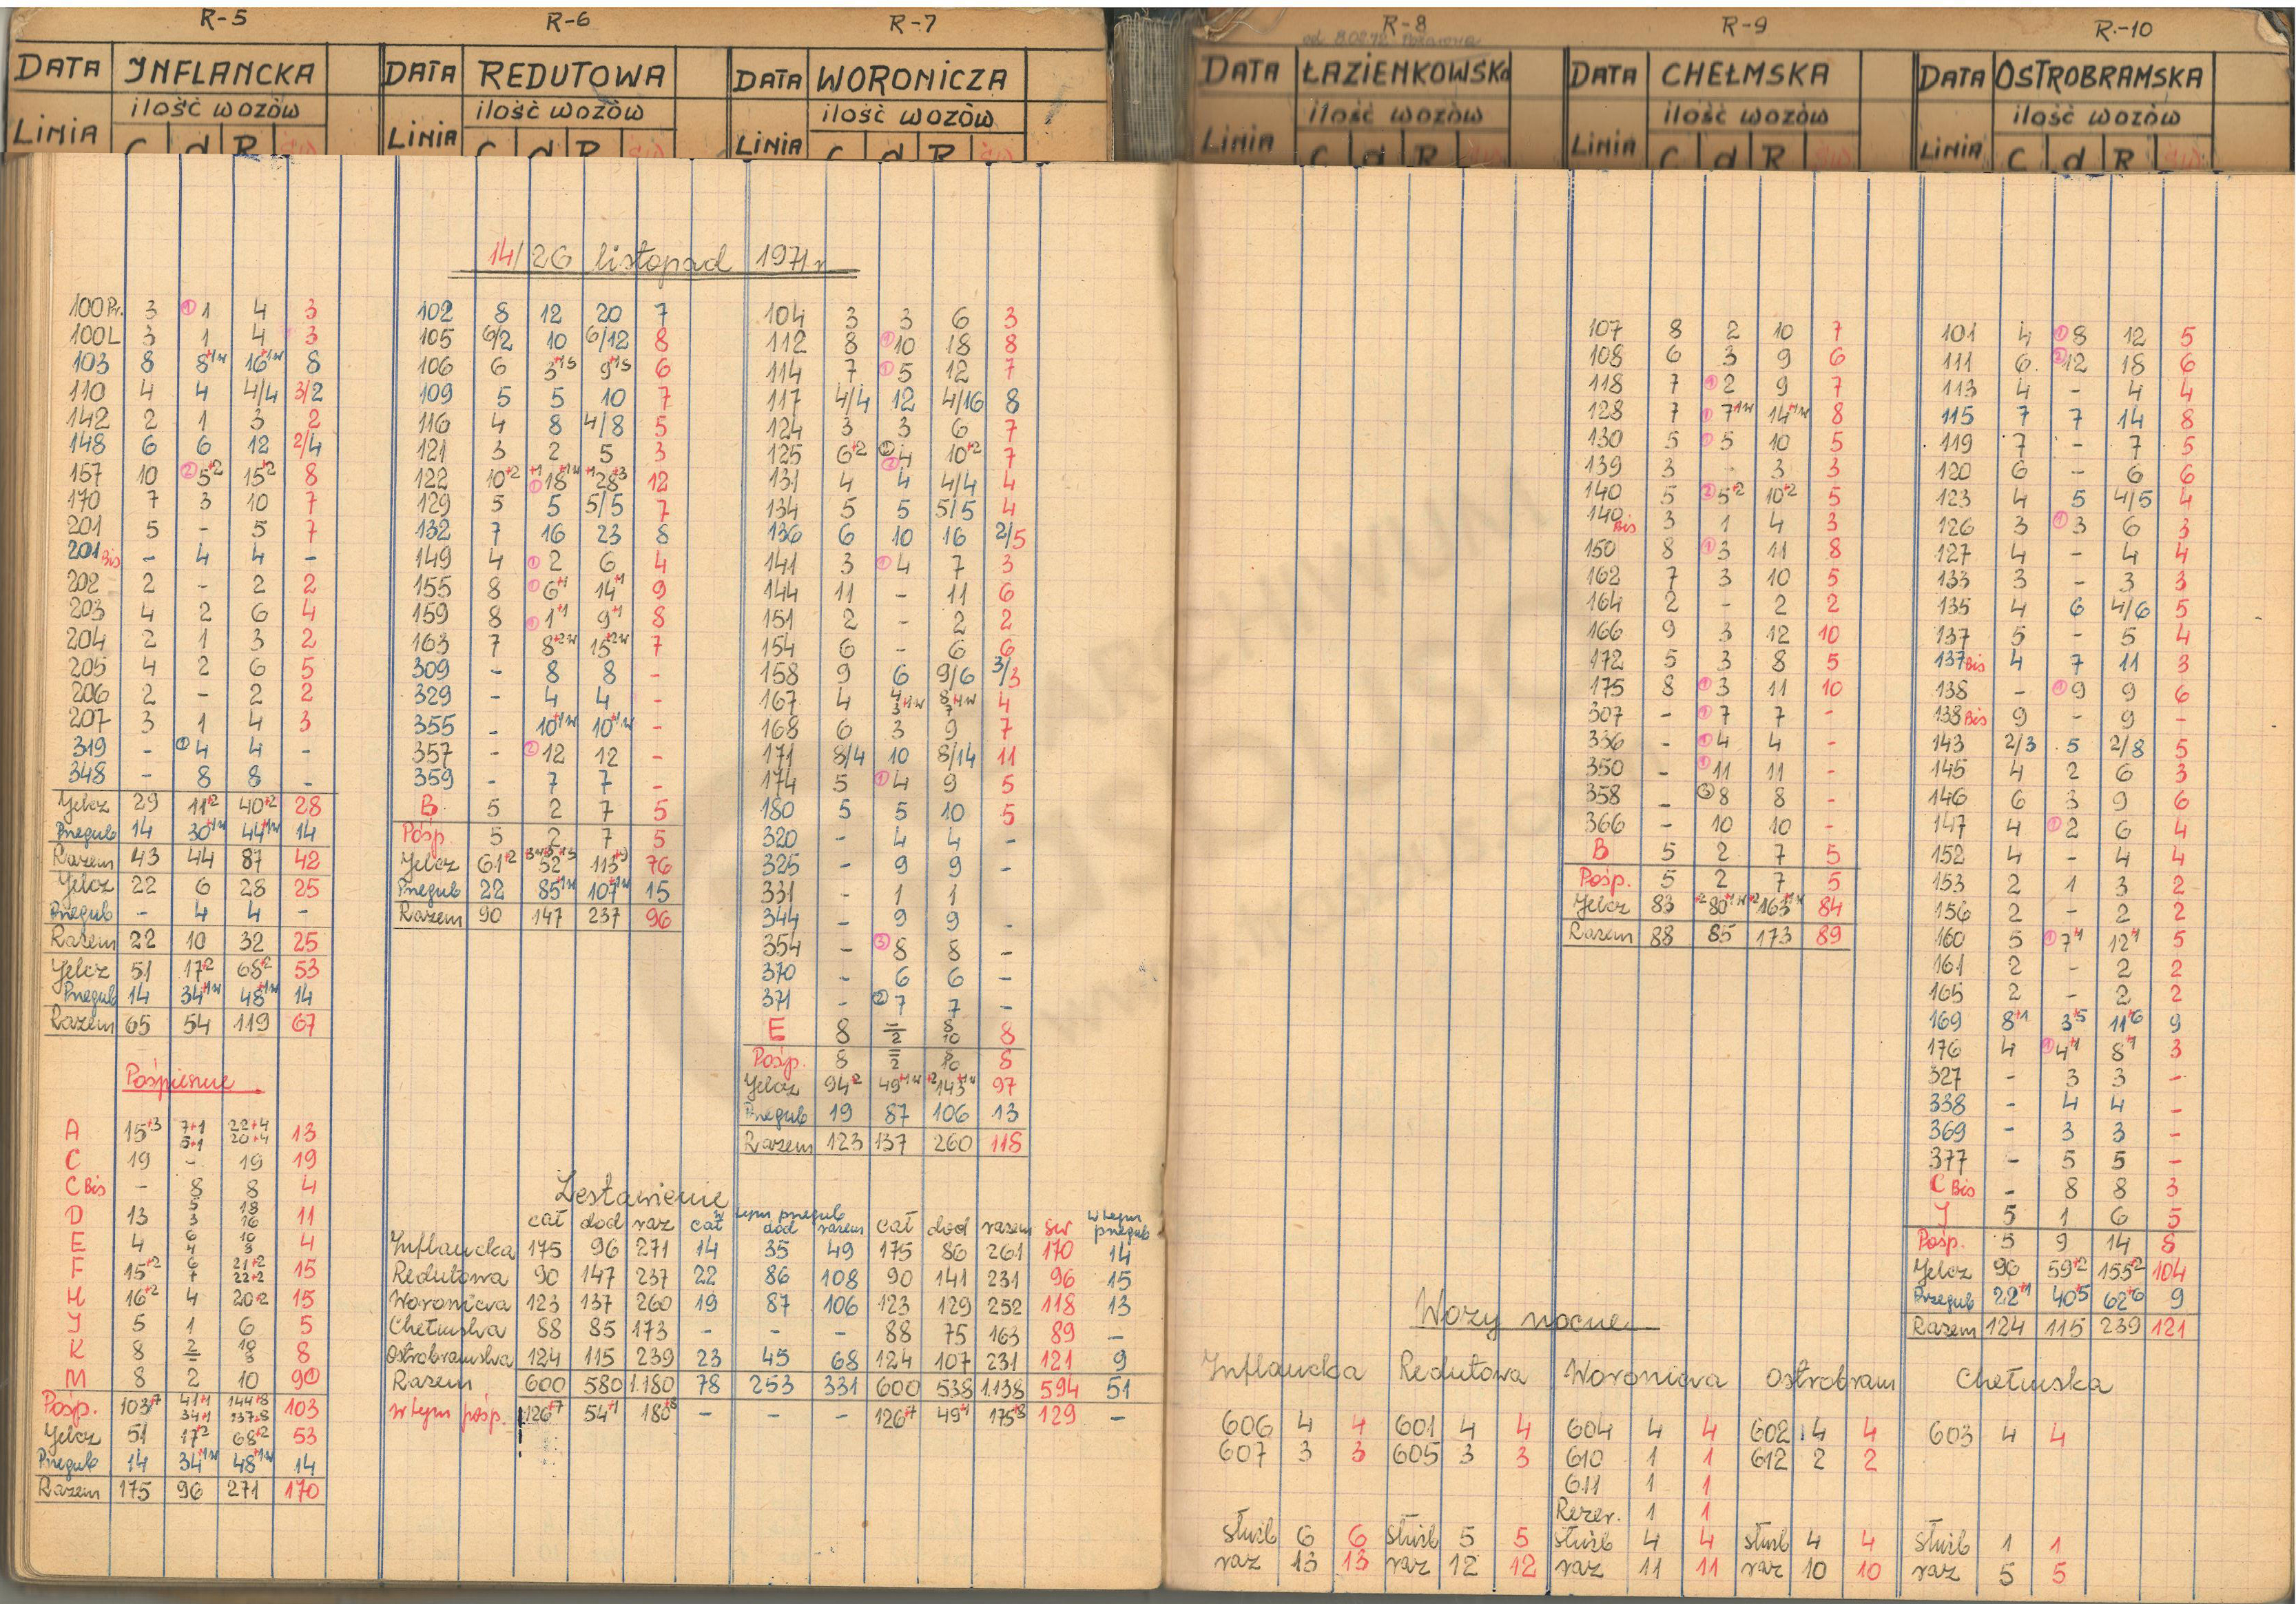 R-5
DATA INFLANCKA
ilość wozów
LINIA C d R św
R-6
DATA REDUTOWA
ilość wozów
LINIA C d R św
R-7
DATA WORONICZA
ilość wozów
LINIA C d R św
R-8
od 8.02.72
DATA ŁAZIENKOWSKA
ilość wozów
LINIA C d R św
R-9
DATA CHEŁMSKA
ilość wozów
LINIA C d R św
R.-10
DATA OSTROBRAMSKA
ilość wozów
LINIA C d R św
14/26 listopad 1971 r
100 Pr. 3 ① 1 4 3
100 L 3 1 4 3
103 8 8+1w 16+1w 8
110 4 4 4/4 3/2
142 2 1 3 2
148 6 6 12 2/4
157 10 ② 5+2 15+2 8
170 7 3 10 7
201 5 - 5 7
201 Bis - 4 4 -
202 2 - 2 2
203 4 2 6 4
204 2 1 3 2
205 4 2 6 5
206 2 - 2 2
207 3 1 4 3
319 - ① 4 4 -
348 - 8 8 -
Jelcz 29 11+2 40+2 28
Przegub 14 30+1w 44+1w 14
Razem 43 44 87 42
Jelcz 22 6 28 25
Przegub - 4 4 -
Razem 22 10 32 25
Jelcz 51 17+2 68+2 53
Przegub 14 34+1w 48+1w 14
Razem 65 54 119 67
Pośpieszne
A 15+3 7+1 5+1 22+4 20+4 13
C 19 - 19 19
C Bis - 8 8 4
D 13 5 3 18 16 11
E 4 6 4 10 8 4
F 15+2 6 7 21+2 22+2 15
H 16+2 4 20+2 15
J 5 1 6 5
K 8 2 - 10 8 8
M 8 2 10 9
Pośp. 103+7 41+1 34+1 144+8 137+8 103
Jelcz 51 17+2 68+2 53
Przegub 14 34+1w 48+1w 14
Razem 175 96 271 170
102 8 12 20 7
105 6/2 10 6/12 8
106 6 3+1S 9+1S 6
109 5 5 10 7
116 4 8 4/8 5
121 3 2 5 3
122 10+2 +1 ① 18+1w +1 28+3 12
129 5 5 5/5 7
132 7 16 23 8
149 4 ① 2 6 4
155 8 ① 6+1 14+1 9
159 8 ① 1+1 9+1 8
163 7 8+2w 15+2w 7
309 - 8 8 -
329 - 4 4 -
355 - 10+1w 10+1w -
357 - ② 12 12 -
359 - 7 7 -
B 5 2 7 5
Pośp. 5 2 7 5
Jelcz 61+2 52 113 76
Przegub 22 85+1w 107+1w 15
Razem 90 147 237 96
104 3 3 6 3
112 8 ① 10 18 8
114 7 ① 5 12 7
117 4/4 12 4/16 8
124 3 3 6 7
125 6+2 ② 4 10+2 7
131 4 4 4/4 4
134 5 5 5/5 4
136 6 10 16 2/5
141 3 ① 4 7 3
144 11 - 11 6
151 2 - 2 2
154 6 - 6 6
158 9 6 9/6 3/3
167 4 4 3+1w 8 7+1w 4
168 6 3 9 7
171 8/4 10 8/14 11
174 5 ① 4 9 5
180 5 5 10 5
320 - 4 4 -
325 - 9 9 -
331 - 1 1
344 - 9 9 -
354 - ③ 8 8 -
370 - 6 6 -
371 - ② 7 7 -
E 8 - 2 8 10 8
Pośp. 8 - 2 8 10 8
Jelcz 94+2 49+1w +2 143+1w 97
Przegub 19 87 106 13
Razem 123 137 260 118
Zestawienie
cał dod raz w tym przegub cał dod razem cał dod razem św w tym przegub
Inflancka 175 96 271 14 35 49 175 86 261 170 14
Redutowa 90 147 237 22 86 108 90 141 231 96 15
Woronicza 123 137 260 19 87 106 123 129 252 118 13
Chełmska 88 85 173 - - - 88 75 163 89 -
Ostrobramska 124 115 239 23 45 68 124 107 231 121 9
Razem 600 580 1.180 78 253 331 600 538 1.138 594 51
w tym pośp. 126+7 54+1 180+8 - - - 126+7 49+1 175+8 129 -
107 8 2 10 7
108 6 3 9 6
118 7 ① 2 9 7
128 7 ① 7+1w 14+1w 8
130 5 ① 5 10 5
139 3 - 3 3
140 5 ② 5+2 10+2 5
140 Bis 3 1 4 3
150 8 ① 3 11 8
162 7 3 10 5
164 2 - 2 2
166 9 3 12 10
172 5 3 8 5
175 8 ① 3 11 10
307 - ① 7 7 -
336 - ① 4 4 -
350 - ① 11 11 -
358 - ③ 8 8 -
366 - 10 10 -
B 5 2 7 5
Pośp. 5 2 7 5
Jelcz 83 +2 80+1w +2 163+1w 84
Razem 88 85 173 89
101 4 ① 8 12 5
111 6 ② 12 18 6
113 4 - 4 4
115 7 7 14 8
119 7 - 7 5
120 6 - 6 6
123 4 5 4/5 4
126 3 ① 3 6 3
127 4 - 4 4
133 3 - 3 3
135 4 6 4/6 5
137 5 - 5 4
137 Bis 4 7 11 3
138 - ① 9 9 6
138 Bis 9 - 9 -
143 2/3 5 2/8 5
145 4 2 6 3
146 6 3 9 6
147 4 ① 2 6 4
152 4 - 4 4
153 2 1 3 2
156 2 - 2 2
160 5 ① 7+1 12+1 5
161 2 - 2 2
165 2 - 2 2
169 8+1 3+5 11+6 9
176 4 ① 4+1 8+1 3
327 - 3 3 -
338 - 4 4 -
369 - 3 3 -
377 - 5 5 -
C Bis - 8 8 3
J 5 1 6 5
Pośp. 5 9 14 8
Jelcz 96 59+2 155+2 104
Przegub 22+1 40+5 62+6 9
Razem 124 115 239 121
Wozy nocne
Inflancka Redutowa Woronicza Ostrobram Chełmska
606 4 4 601 4 4 604 4 4 602 4 4 603 4 4
607 3 3 605 3 3 610 1 1 612 2 2
611 1 1
Rezer. 1 1
służb 6 6 służb 5 5 służb 4 4 służb 4 4 służb 1 1
raz 13 13 raz 12 12 raz 11 11 raz 10 10 raz 5 5